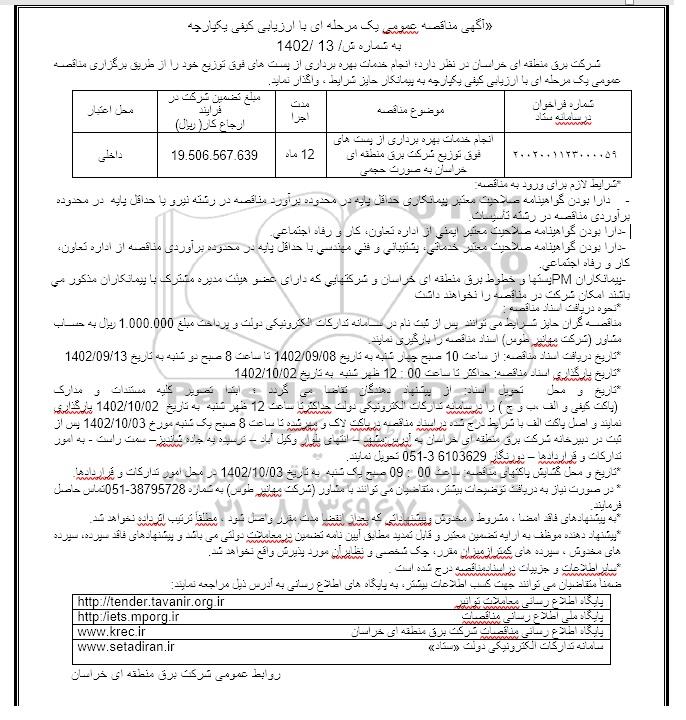 «آگهی مناقصه عمومی یک مرحله ای با ارزیابی کیفی یکپارچه
به شماره ش/ 13 /1402
شرکت برق منطقه ای خراسان در نظر دارد؛ انجام خدمات بهره برداری از پست های فوق توزیع خود را از طریق برگزاری مناقصه
عمومی یک مرحله ای با ارزیابی کیفی یکپارچه به پیمانکار حایز شرایط ، واگذار نماید.
شماره فراخوان در سامانه ستاد
موضوع مناقصه
مدت اجرا
مبلغ تضمین شرکت در فرایند ارجاع کار( ریال)
محل اعتبار
۲۰۰۲۰۰۱۱۲۳۰۰۰۰۵۹
انجام خدمات بهره برداری از پست های
فوق توزیع شرکت برق منطقه ای
خراسان به صورت حجمی
12 ماه
19.506.567.639
داخلی
*شرایط لازم برای ورود به مناقصه:
- دارا بودن گواهینامه صلاحیت معتبر پیمانکاری حداقل پایه در محدوده برآورد مناقصه در رشته نیرو یا حداقل پایه در محدوده
برآوردی مناقصه در رشته تأسیسات.
-دارا بودن گواهینامه صلاحیت معتبر ایمنی از اداره تعاون، کار و رفاه اجتماعي.
-دارا بودن گواهينامه صلاحيت معتبر خدماتي، پشتيباني و فني مهندسي با حداقل پايه در محدوده برآوردی مناقصه از اداره تعاون،
کار و رفاه اجتماعي.
-پیمانکاران PMپستها و خطوط برق منطقه ای خراسان و شرکتهایی که دارای عضو هیئت مدیره مشترک با پیمانکاران مذکور می
باشند امکان شرکت در مناقصه را نخواهند داشت
*نحوه دریافت اسناد مناقصه :
مناقصه گران حایز شرایط می توانند پس از ثبت نام در سامانه تدارکات الکترونیکی دولت و پرداخت مبلغ 1.000.000 ریال به حساب
مشاور (شرکت مهانیر طوس) اسناد مناقصه را بارگیری نمایند.
*تاریخ دریافت اسناد مناقصه: از ساعت 10 صبح چهار شنبه به تاریخ 1402/09/08 تا ساعت 8 صبح دو شنبه به تاریخ 1402/09/13
*تاریخ بارگذاری اسناد مناقصه: حداکثر تا ساعت 00 : 12 ظهر شنبه به تاریخ 1402/10/02
*تاریخ و محل تحویل اسناد: از پیشنهاد دهندگان تقاضا می گردد ؛ ابتدا تصویر کلیه مستندات و مدارک
(پاکت کیفی و الف ،ب و ج ) را در سامانه تدارکات الکترونیکی دولت حداکثر تا ساعت 12 ظهر شنبه به تاریخ 1402/10/02 بارگذاری
نمایند و اصل پاکت الف با شرایط درج شده در اسناد مناقصه در پاکت لاک و مهر شده تا ساعت 8 صبح یک شنبه مورخ 1402/10/03 پس از
ثبت در دبیرخانه شرکت برق منطقه ای خراسان به آدرس مشهد – انتهای بلوار وکیل آباد – نرسیده به جاده شاندیز– سمت راست - به امور
تدارکات و قراردادها – دورنگار 6103629 3-051 تحویل نمایند.
*تاریخ و محل گشایش پاکتهای مناقصه: ساعت 00 : 09 صبح یک شنبه به تاریخ 1402/10/03 در محل امور تدارکات و قراردادها.
* در صورت نیاز به دریافت توضیحات بیشتر، متقاضیان می توانند با مشاور (شرکت مهانیر طوس) به شماره 38795728-051تماس حاصل
فرمایند.
*به پیشنهادهای فاقد امضا ، مشروط ، مخدوش و پیشنهاداتی که پس از انقضا مدت مقرر واصل شود ، مطلقاً ترتیب اثر داده نخواهد شد.
*پیشنهاد دهنده موظف به ارایه تضمین معتبر و قابل تمدید مطابق آیین نامه تضمین در معاملات دولتی می باشد و پیشنهادهای فاقد سپرده، سپرده
های مخدوش ، سپرده های کمتر از میزان مقرر، چک شخصی و نظایر آن مورد پذیرش واقع نخواهد شد.
*سایر اطلاعات و جزییات در اسناد مناقصه درج شده است .
ضمناً متقاضیان می توانند جهت کسب اطلاعات بیشتر، به پایگاه های اطلاع رسانی به آدرس ذیل مراجعه نمایند:
پایگاه اطلاع رسانی معاملات توانیر http://tender.tavanir.org.ir
پایگاه ملی اطلاع رسانی مناقصات http://iets.mporg.ir
پایگاه اطلاع رسانی مناقصات شرکت برق منطقه ای خراسان www.krec.ir
سامانه تدارکات الکترونیکی دولت «ستاد» www.setadiran.ir
روابط عمومی شرکت برق منطقه ای خراسان